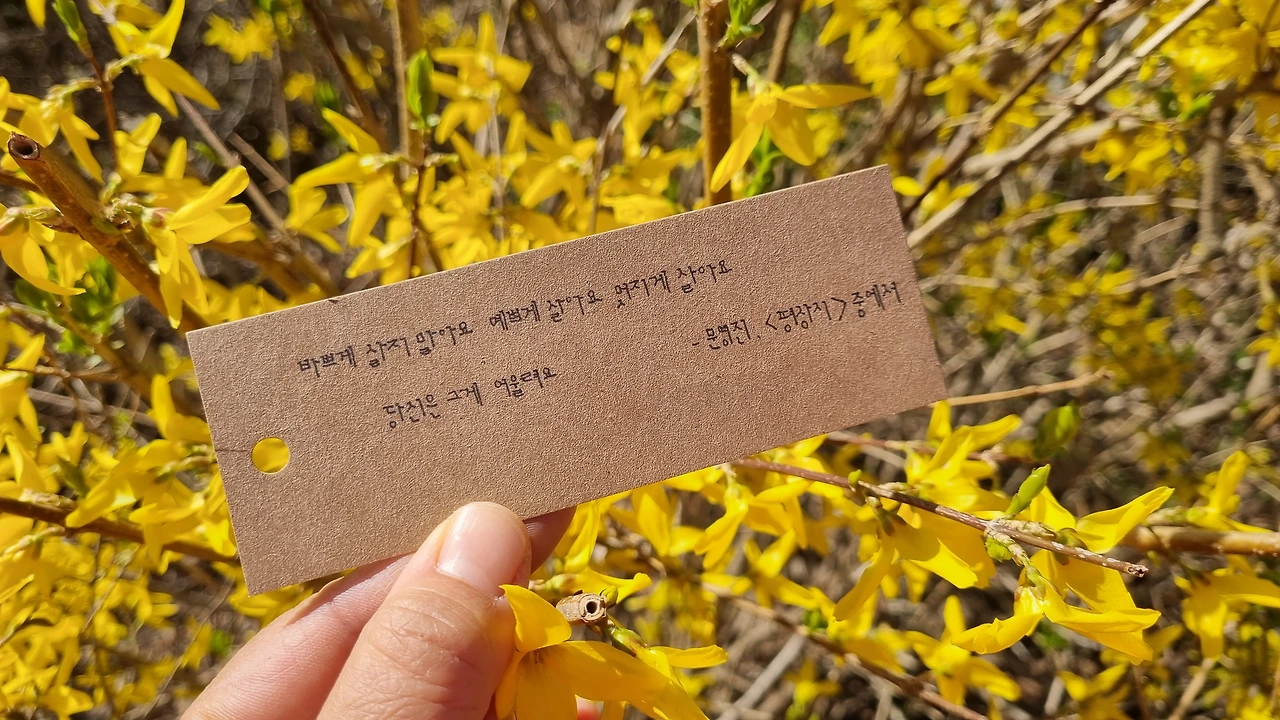 바쁘게 살지 말아요 예쁘게 살아요 멋지게 살아요
당신은 그게 어울려요
- 문영진, <평장지> 중에서